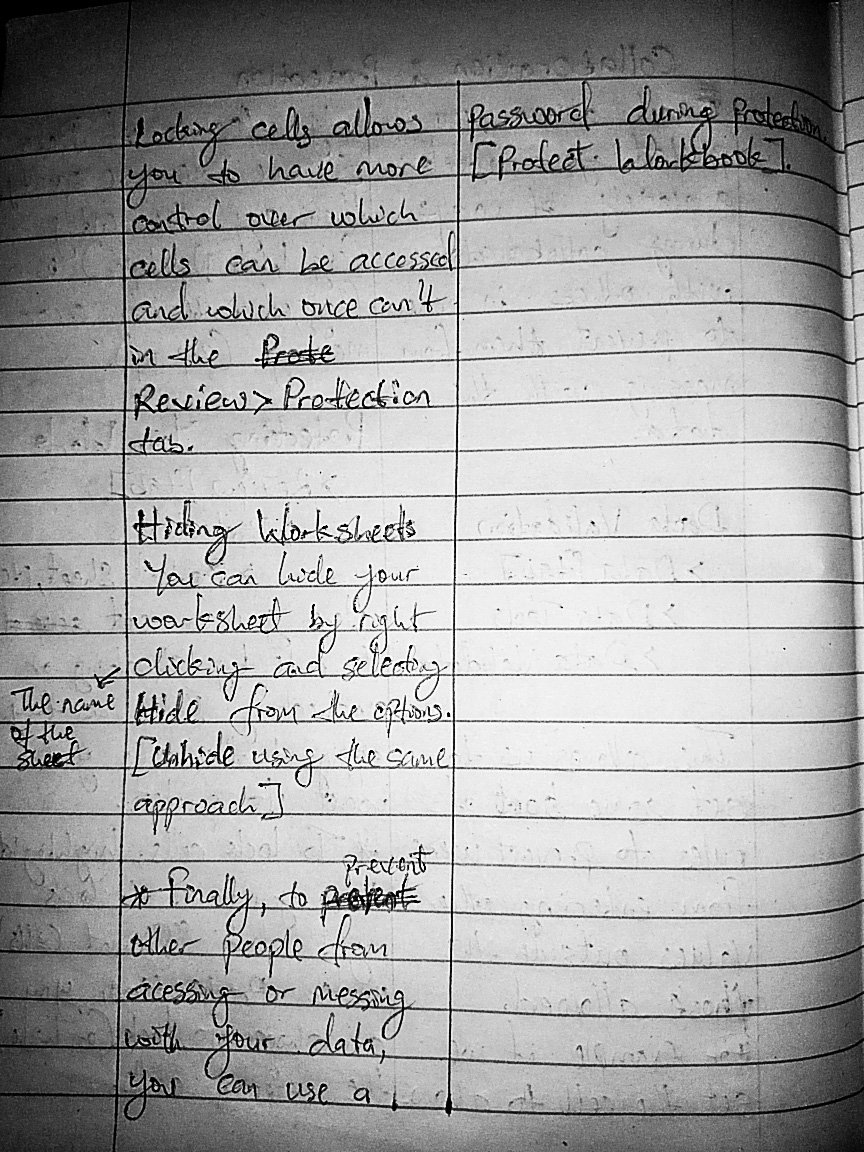 Locking cells allows
you to have more
control over which
cells can be accessed
and which once can't
in the Prote
Review > Protection
tab.
Hiding Worksheets
You can hide your
worksheet by right
clicking and selecting
Hide from the options.
[Unhide using the same
approach]
The name
of the
sheet
prevent
* Finally, to
other people from
acessing or messing
with your data,
you can use a
password during protection
[Protect Workbook].